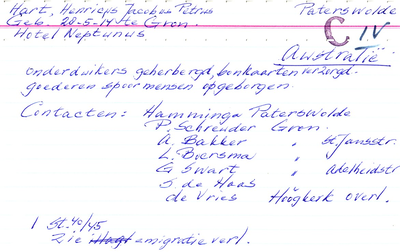 Hart, Henricus Jacobus Petrus Paterswolde
Geb. 20-5-14 te Gron. C IV
Hotel Neptunus
Australië
onderduikers geherbergd, bonkaarten verzorgd.
goederen spoormensen opgeborgen.
Contacten: Hamminga Paterswolde
P. Schreuder Gron.
A. Bakker " St Jansstr.
L. Biersma "
G. Swart " Adelheidstr
J. de Haas
de Vries Hoogkerk overl.
1 St. 40/45
Zie emigratie verl.